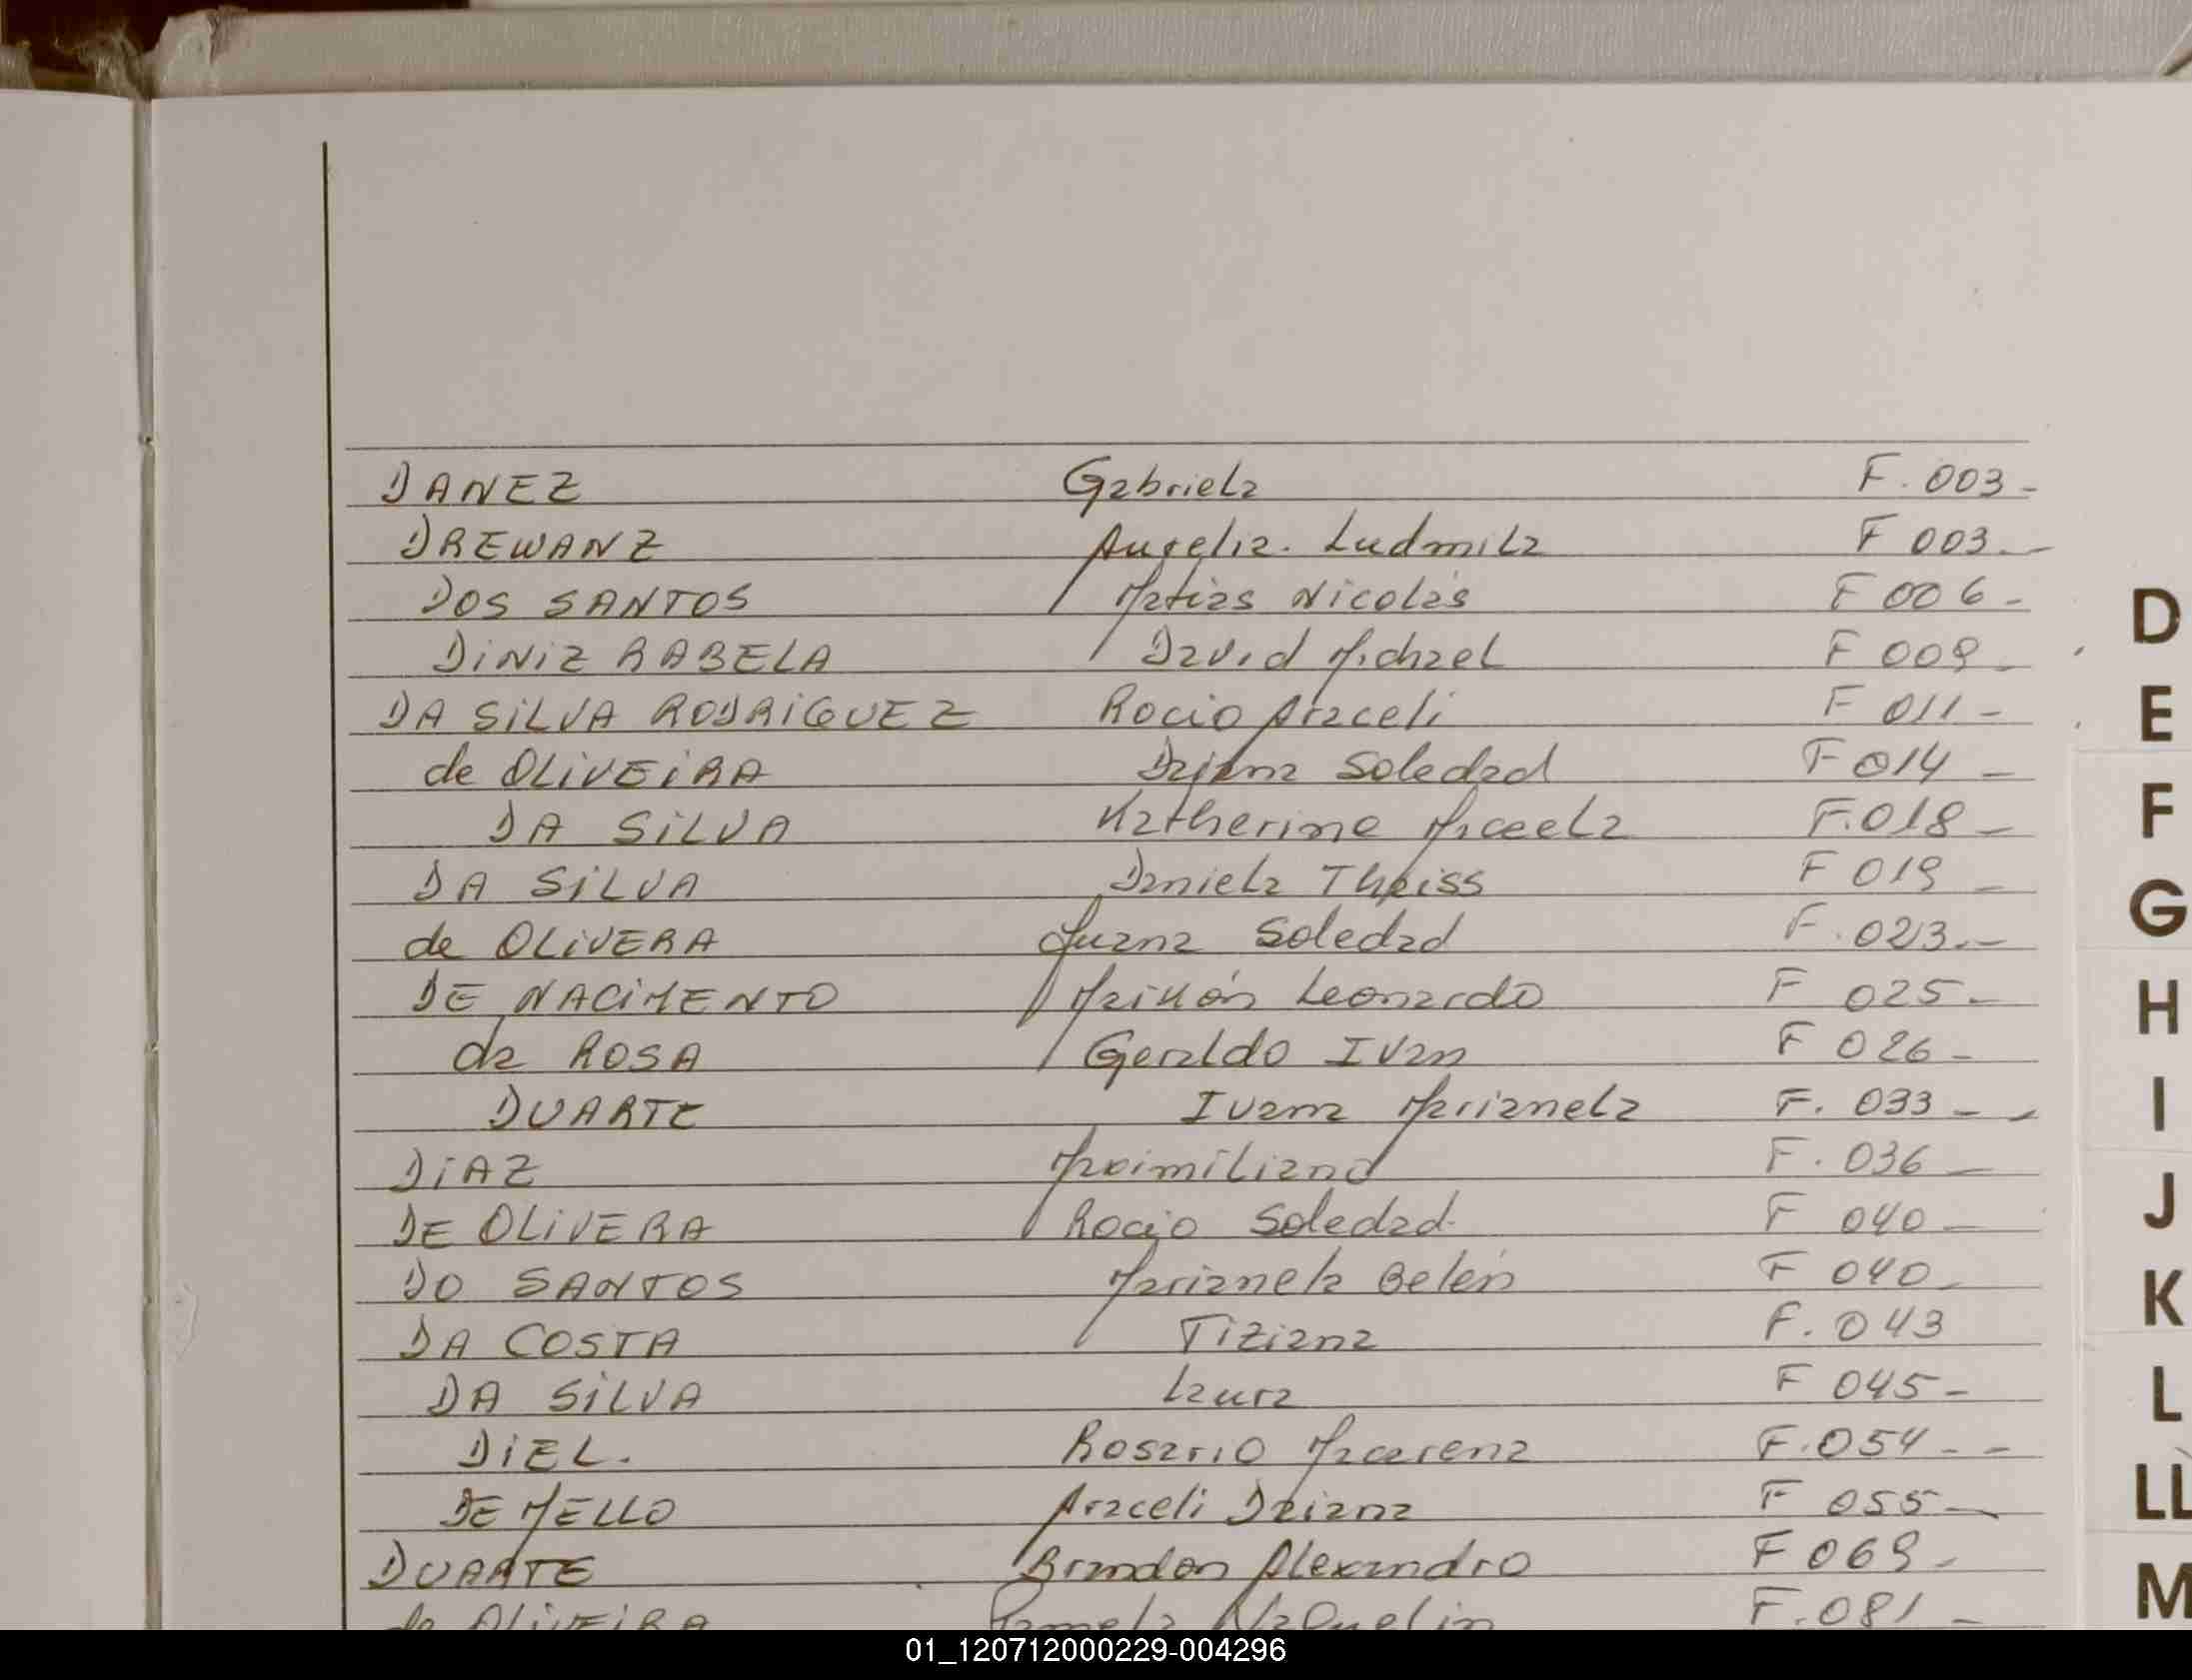 DANEZ Gabriela F. 003-
DREWANZ Aurelia. Ludmila F 003.-
DOS SANTOS Matias Nicolás F 006-
DINIZ RABELA David Michael F 009-
DA SILVA RODRIGUEZ Rocio Araceli F 011-
de OLIVEIRA Daiana Soledad F 014-
DA SILVA Katherine Micaela F.018-
DA SILVA Daniela Theiss F 019-
de OLIVERA Juana Soledad F. 023.-
DE NACIMENTO Maikón Leonardo F 025-
da ROSA Geraldo Ivan F 026-
DUARTE Ivana Marianela F. 033--
DIAZ Maximiliano F. 036-
DE OLIVERA Rocio Soledad F 040-
DO SANTOS Marianela Belén F 040-
DA COSTA Tiziana F. 043
DA SILVA Laura F 045-
DIEL. Rosario Macarena F.054--
DE MELLO Araceli Daiana F 055-
DUARTE Brandon Alexandro F 069-
de OLIVEIRA Pamela F.081-
D
E
F
G
H
I
J
K
L
LL
M
01_120712000229-004296